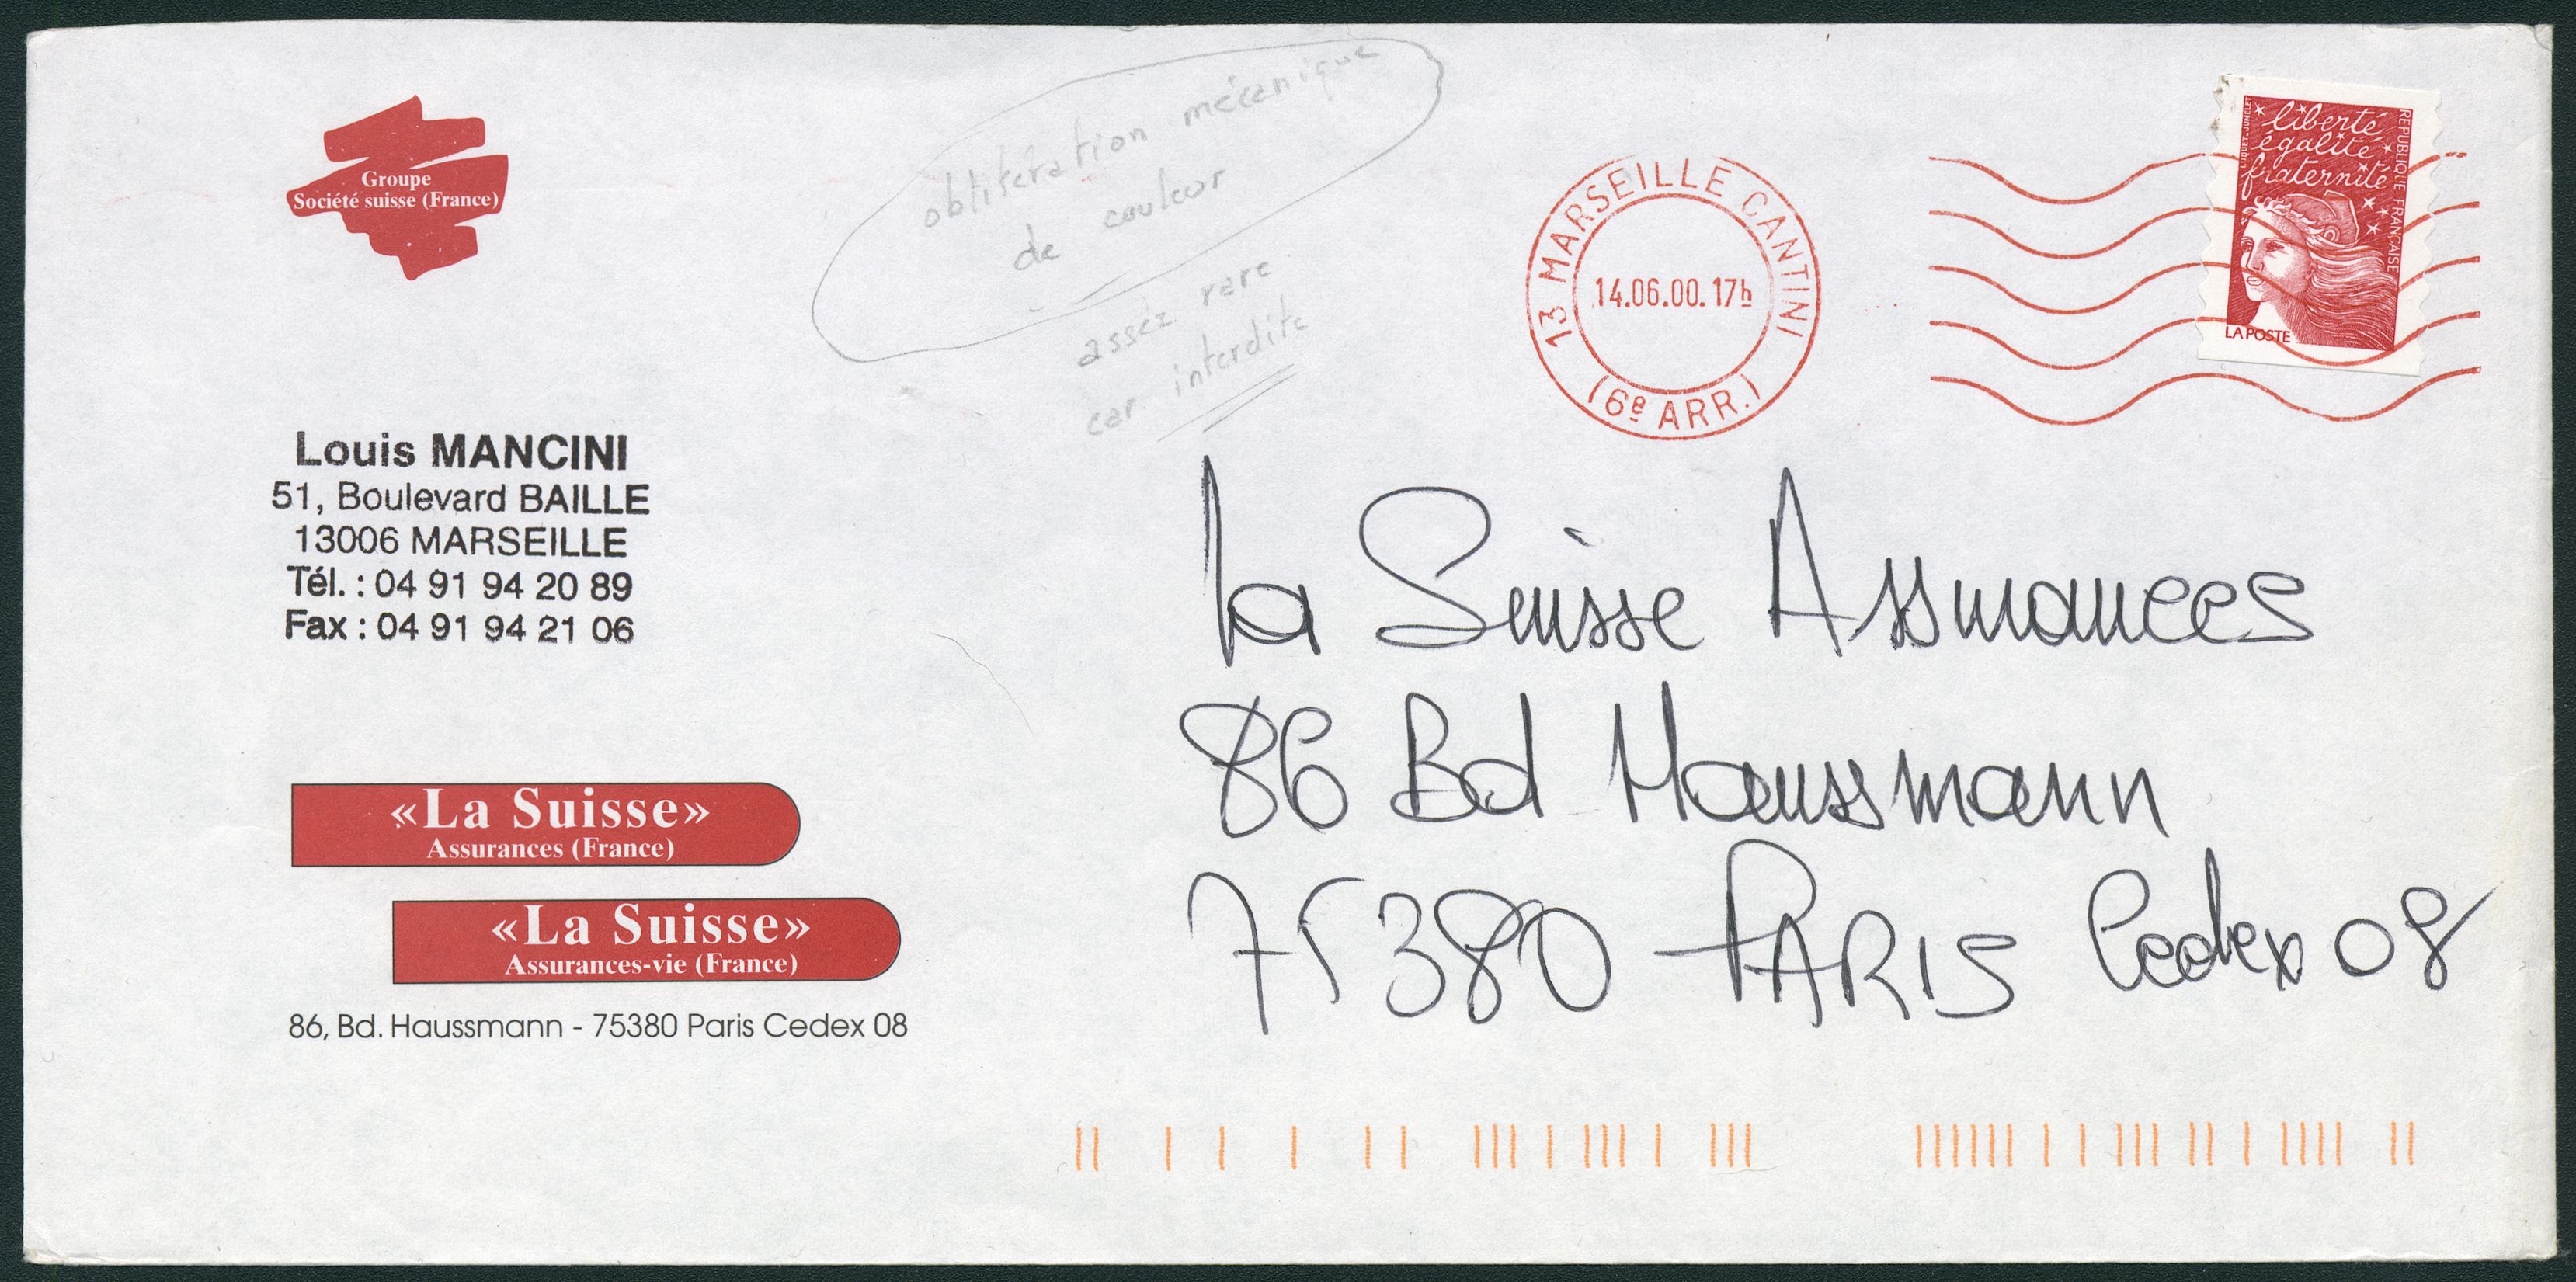 Groupe
Société suisse (France)
oblitération mécanique
de couleur
assez rare
car interdite
13 MARSEILLE CANTINI
14.06.00.17h
(6e ARR.)
liberté
égalité
fraternité
REPUBLIQUE FRANÇAISE
LUQUET-JUMELET
LA POSTE
Louis MANCINI
51, Boulevard BAILLE
13006 MARSEILLE
Tél. : 04 91 94 20 89
Fax : 04 91 94 21 06
La Suisse Assurances
86 Bd Haussmann
75380 PARIS Cedex 08
«La Suisse»
Assurances (France)
«La Suisse»
Assurances-vie (France)
86, Bd. Haussmann - 75380 Paris Cedex 08